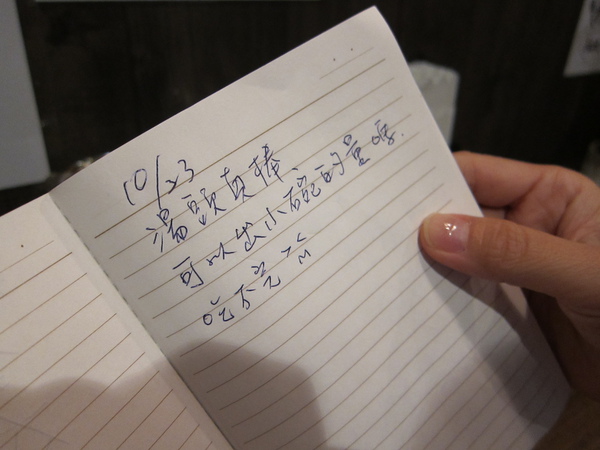 10/23
湯頭真棒、
可以出小碗的量嗎.
吃不完ㄒㄍ